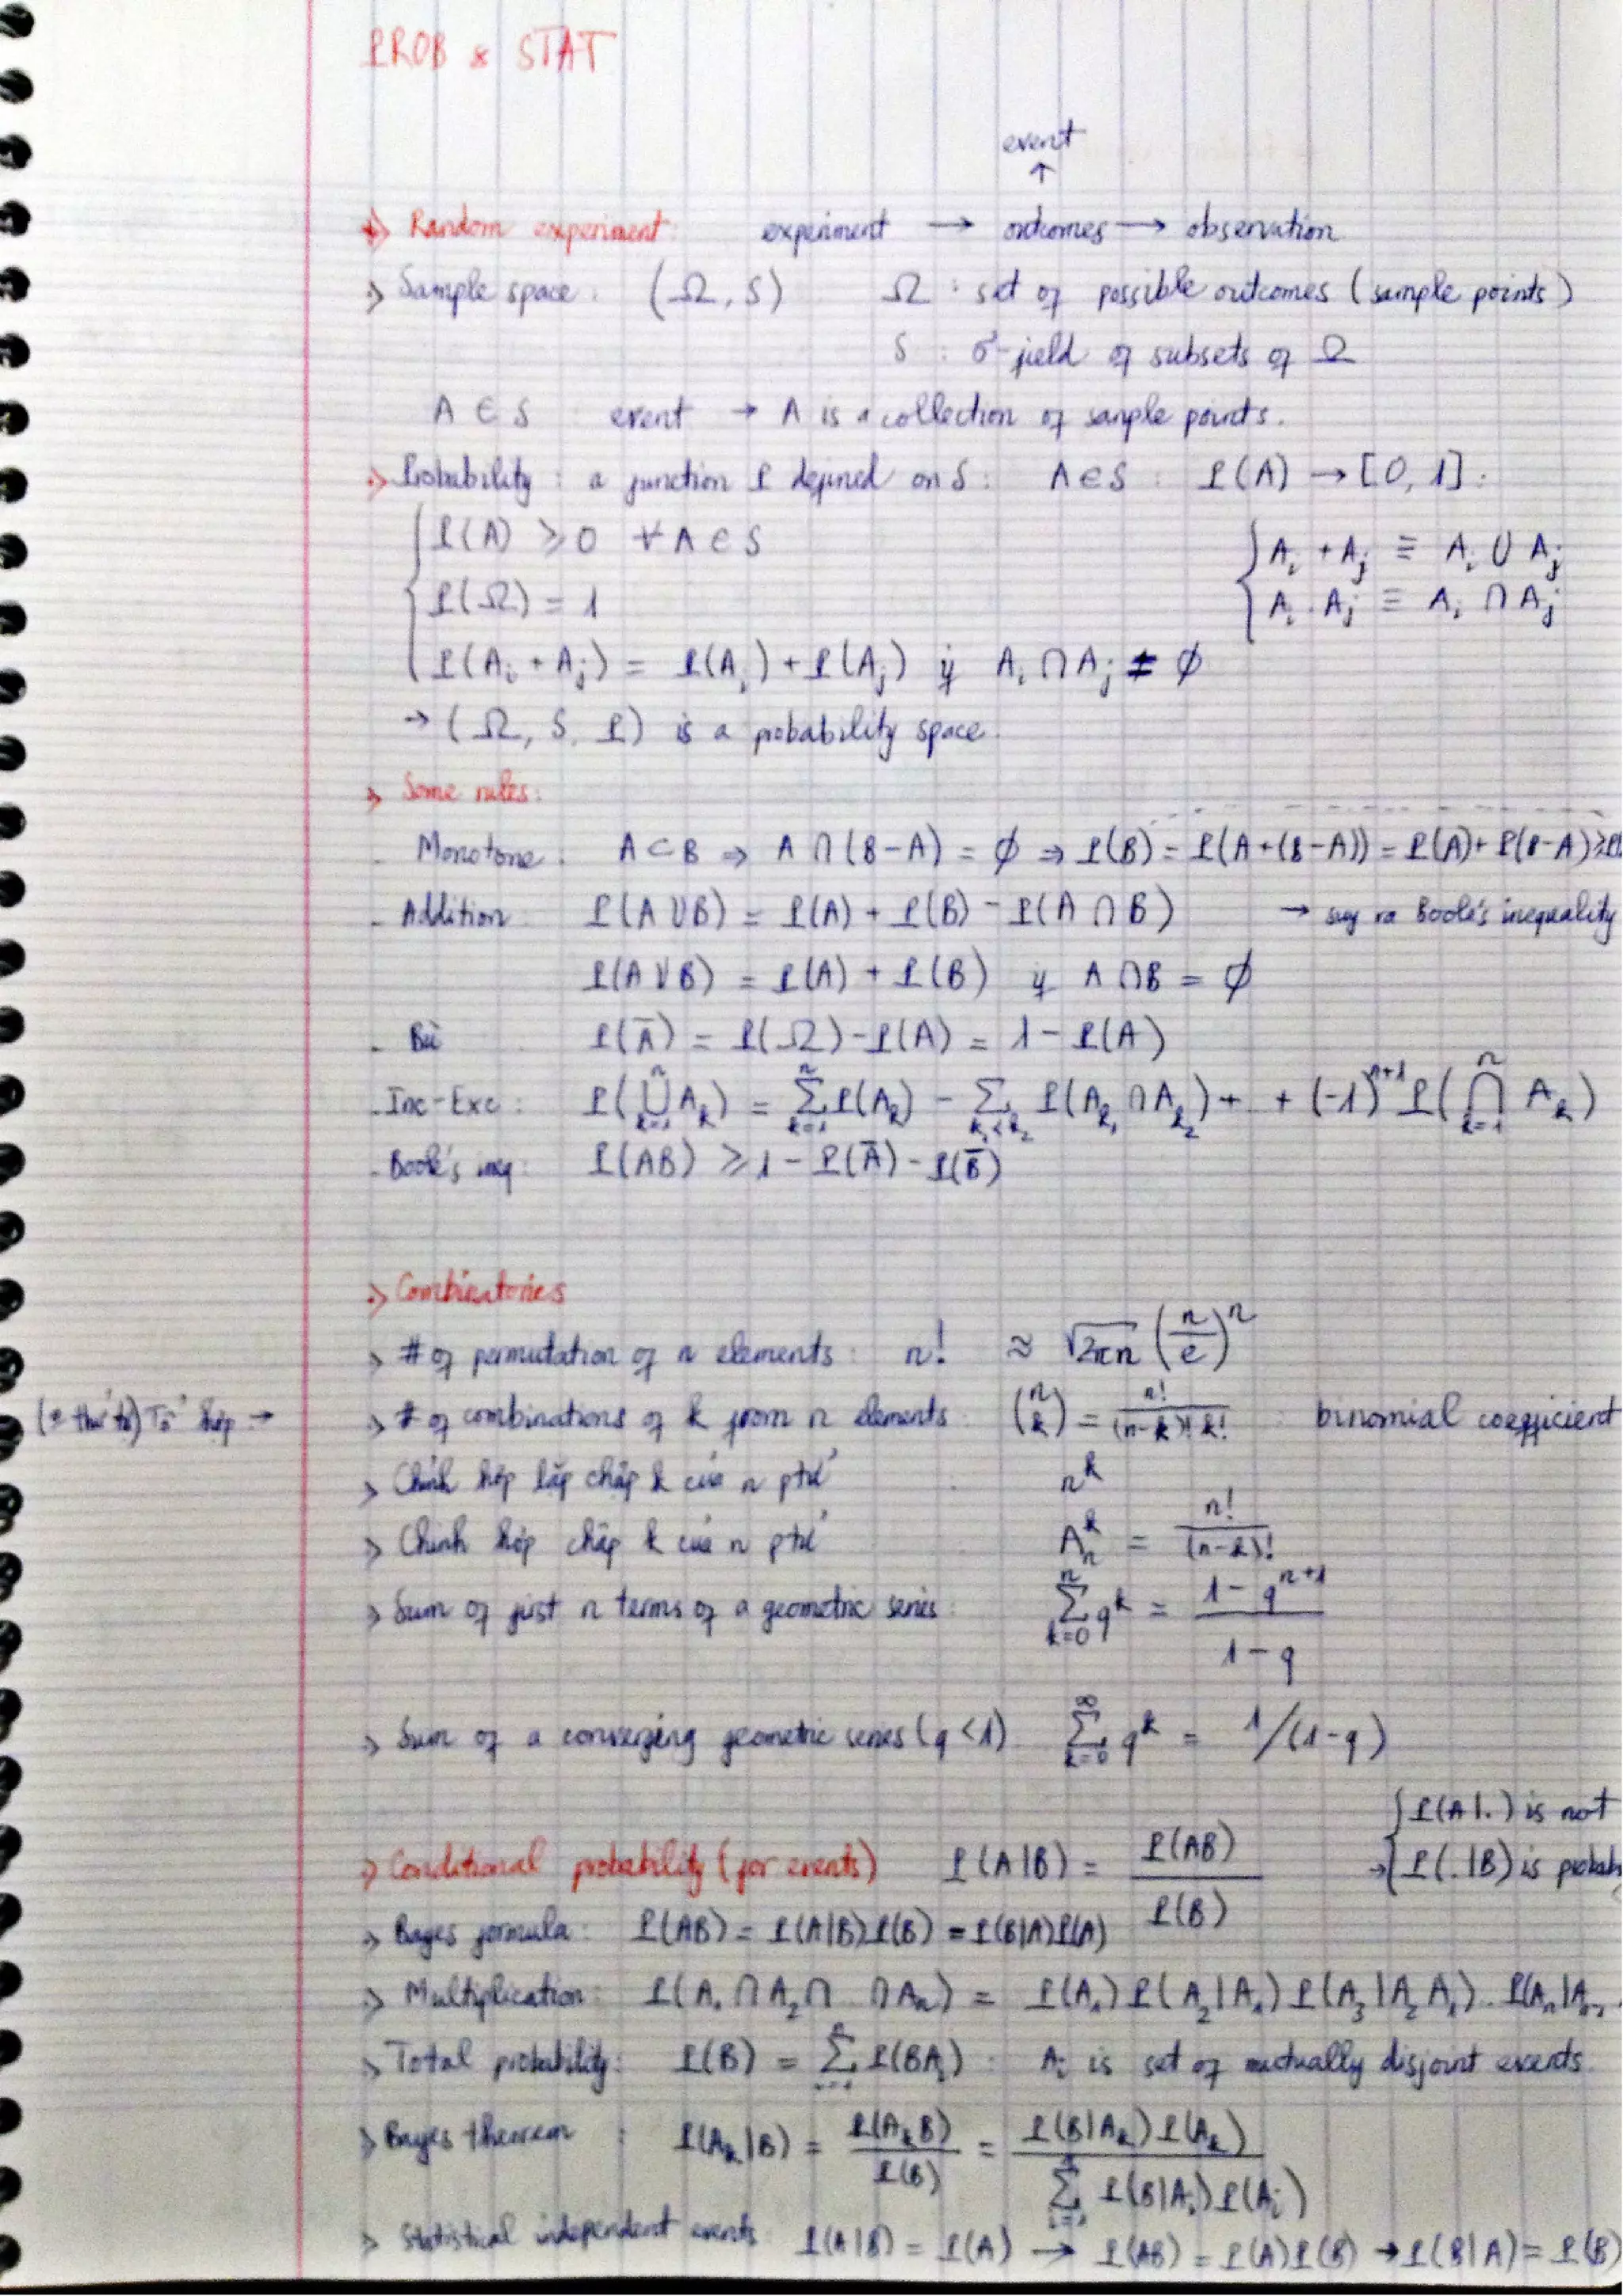 PROB & STAT
event
↑
→ Random experiment: experiment → outcomes → observation
→ Sample space: (Ω, S) Ω : set of possible outcomes (sample points)
S : σ-field of subsets of Ω
A ∈ S : event → A is a collection of sample points.
→ Probability : a function P defined on S : A ∈ S : P(A) → [0, 1].
P(A) ≥ 0 ∀ A ∈ S
A_i + A_j ≡ A_i ∪ A_j
P(Ω) = 1
A_i . A_j ≡ A_i ∩ A_j
P(A_i + A_j) = P(A_i) + P(A_j) if A_i ∩ A_j ≠ ∅
→ (Ω, S, P) is a probability space.
> Some rules:
- Monotone : A ⊂ B ⇒ A ∩ (B-A) = ∅ ⇒ P(B) = P(A+(B-A)) = P(A) + P(B-A) ≥ P(
- Addition P(A ∪ B) = P(A) + P(B) - P(A ∩ B) → suy ra Boole's inequality
P(A ∪ B) = P(A) + P(B) if A ∩ B = ∅
- Bù P(Ā) = P(Ω) - P(A) = 1 - P(A)
- Inc-Exc : P(⋃_{k=1}^{n} A_k) = ∑_{k=1}^{n} P(A_k) - ∑_{k_1<k_2} P(A_{k_1} ∩ A_{k_2}) + .. + (-1)^{n+1} P(⋂_{k=1}^{n} A_k)
- Boole's ineq : P(AB) ≥ 1 - P(Ā) - P(B̄)
> Combinatorics
> # of permutation of n elements : n! ≈ √2πn (n/e)^n
Tổ hợp →
> # of combinations of k from n elements : (n k) = n!/((n-k)! k!) : binomial coefficient
> Chỉnh hợp lặp chập k của n ptử : n^k
> Chỉnh hợp chập k của n ptử A_n^k = n!/(n-k)!
> Sum of first n terms of a geometric series : ∑_{k=0}^{n} q^k = (1 - q^{n+1})/(1 - q)
> Sum of a converging geometric series (q < 1) ∑_{k=0}^{∞} q^k = 1/(1-q)
P(A|.) is not
> Conditional probability (for events) P(A|B) = P(AB)/P(B)
→ P(.|B) is probab
> Bayes formula : P(AB) = P(A|B)P(B) = P(B|A)P(A)
> Multiplication : P(A_1 ∩ A_2 ∩ .. ∩ A_n) = P(A_1) P(A_2|A_1) P(A_3|A_2 A_1) .. P(A_n|A_{n-1}
> Total probability : P(B) = ∑_{i=1}^{n} P(BA_i) : A_i is set of mutually disjoint events.
> Bayes theorem : P(A_k|B) = P(A_k B)/P(B) = P(B|A_k) P(A_k) / ∑_{i=1}^{n} P(B|A_i) P(A_i)
> Statistical independent events P(A|B) = P(A) → P(AB) = P(A)P(B) → P(B|A) = P(B)